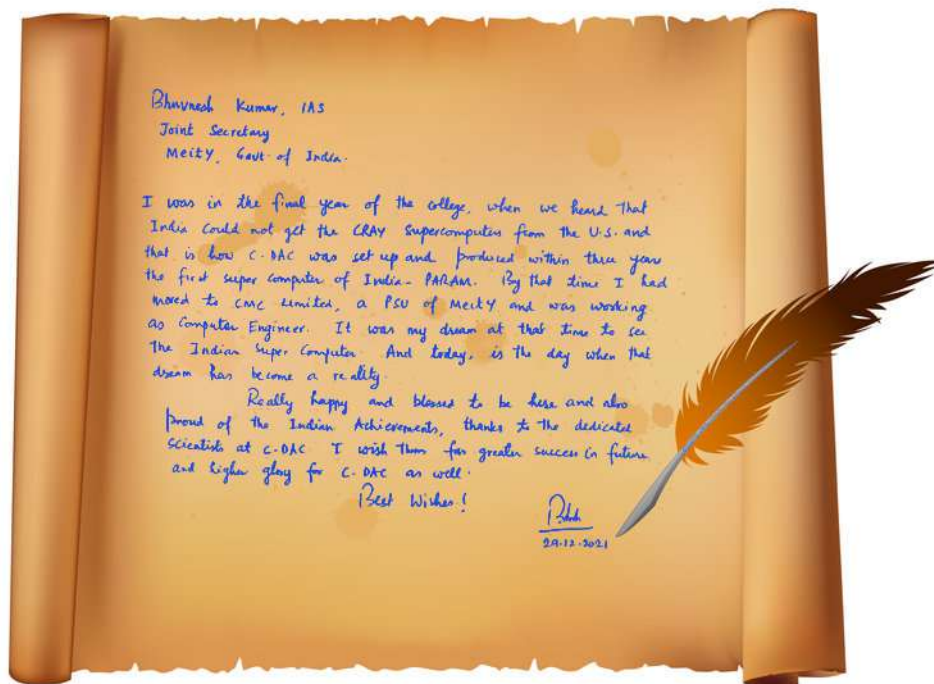 Bhuvnesh Kumar, IAS
Joint Secretary
MeitY, Govt. of India.
I was in the final year of the college, when we heard that
India could not get the CRAY Supercomputer from the U.S. and
that is how C-DAC was set up and produced within three years
the first super computer of India - PARAM. By that time I had
moved to CMC Limited, a PSU of MeitY and was working
as Computer Engineer. It was my dream at that time to see
the Indian Super Computer. And today, is the day when that
dream has become a reality.
Really happy and blessed to be here and also
proud of the Indian Achievements, thanks to the dedicated
scientists at C-DAC. I wish them for greater success in future
and higher glory for C-DAC as well.
Best Wishes!
29.12.2021